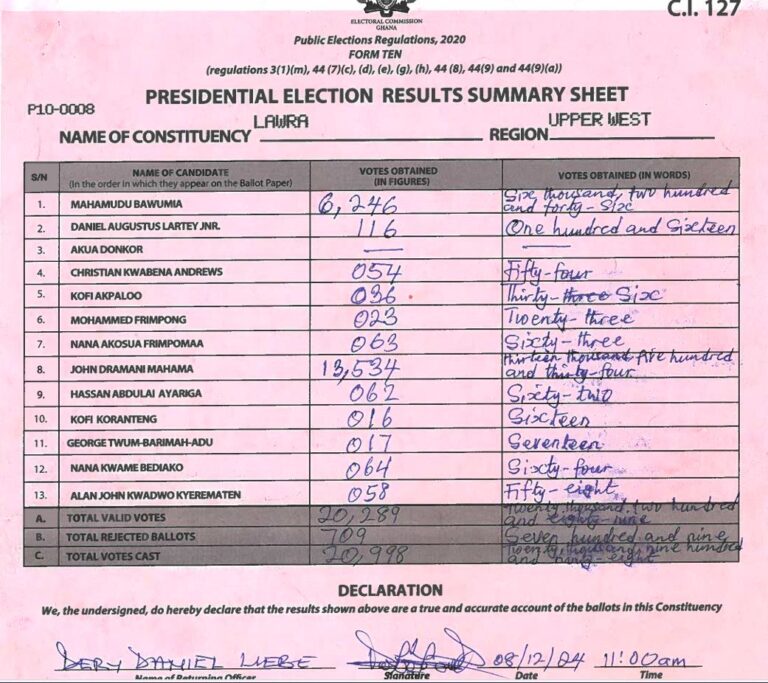 C.I. 127
ELECTORAL COMMISSION
GHANA
Public Elections Regulations, 2020
FORM TEN
(regulations 3(1)(m), 44 (7)(c), (d), (e), (g), (h), 44 (8), 44(9) and 44(9)(a))
PRESIDENTIAL ELECTION RESULTS SUMMARY SHEET
P10-0008
NAME OF CONSTITUENCY LAWRA REGION UPPER WEST
S/N NAME OF CANDIDATE (In the order in which they appear on the Ballot Paper) VOTES OBTAINED (IN FIGURES) VOTES OBTAINED (IN WORDS)
1. MAHAMUDU BAWUMIA 6,246 Six thousand, two hundred and forty-six
2. DANIEL AUGUSTUS LARTEY JNR. 116 One hundred and Sixteen
3. AKUA DONKOR — —
4. CHRISTIAN KWABENA ANDREWS 054 Fifty-four
5. KOFI AKPALOO 036 Thirty-three Six
6. MOHAMMED FRIMPONG 023 Twenty-three
7. NANA AKOSUA FRIMPOMAA 063 Sixty-three
8. JOHN DRAMANI MAHAMA 13,534 thirteen thousand five hundred and thirty-four
9. HASSAN ABDULAI AYARIGA 062 Sixty-two
10. KOFI KORANTENG 016 Sixteen
11. GEORGE TWUM-BARIMAH-ADU 017 Seventeen
12. NANA KWAME BEDIAKO 064 Sixty-four
13. ALAN JOHN KWADWO KYEREMATEN 058 Fifty-eight
A. TOTAL VALID VOTES 20,289 Twenty thousand, two hundred and eighty-nine
B. TOTAL REJECTED BALLOTS 709 Seven hundred and nine
C. TOTAL VOTES CAST 20,998 Twenty thousand, nine hundred and ninty-eight
DECLARATION
We, the undersigned, do hereby declare that the results shown above are a true and accurate account of the ballots in this Constituency
DERY DANIEL LIEBE 08/12/24 11:00am
Name of Returning Officer Signature Date Time